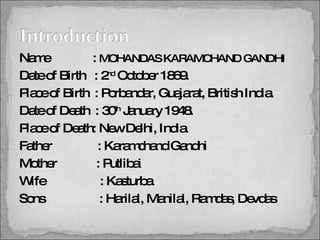 Introduction
Name : MOHANDAS KARAMCHAND GANDHI
Date of Birth : 2nd October 1869.
Place of Birth : Porbandar, Guajarat, British India.
Date of Death : 30th January 1948.
Place of Death: New Delhi, India.
Father : Karamchand Gandhi
Mother : Putlibai
Wife : Kasturba
Sons : Harilal, Manilal, Ramdas, Devdas